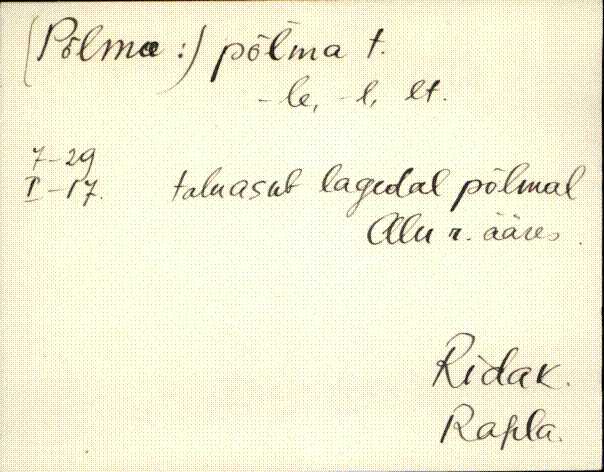 (Põlma :) põlma t.
-le, -l, lt.
7-29
I-17. talu asub lagedal põlmal
Alu r. ääres.
Ridak.
Rapla.